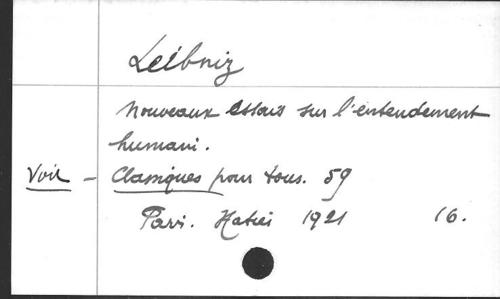 Leibniz
Nouveaux essais sur l'entendement
humani.
Voir - Classiques pour tous. 59
Paris. Hatier 1921 16.